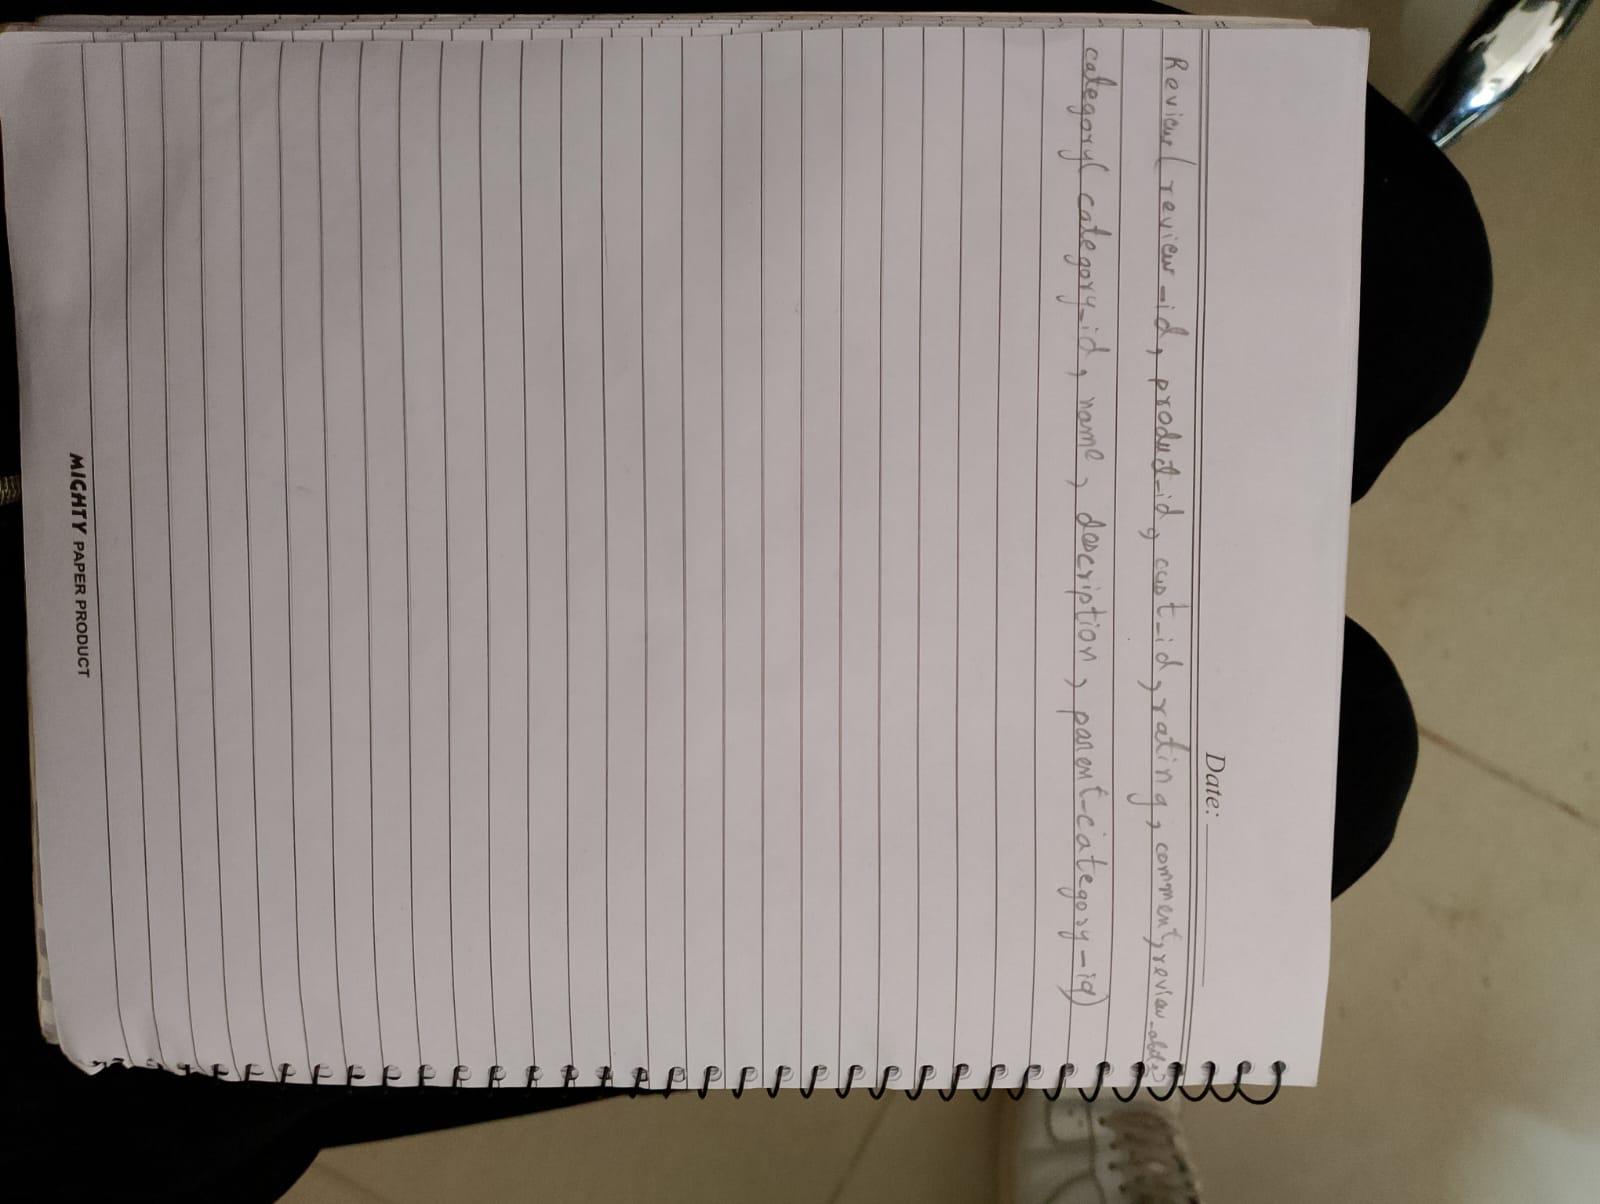 Date:
Review( review_id, product_id, cust_id, rating, comment, review_date)
category( category_id, name, description, parent-category-id)
MIGHTY PAPER PRODUCT